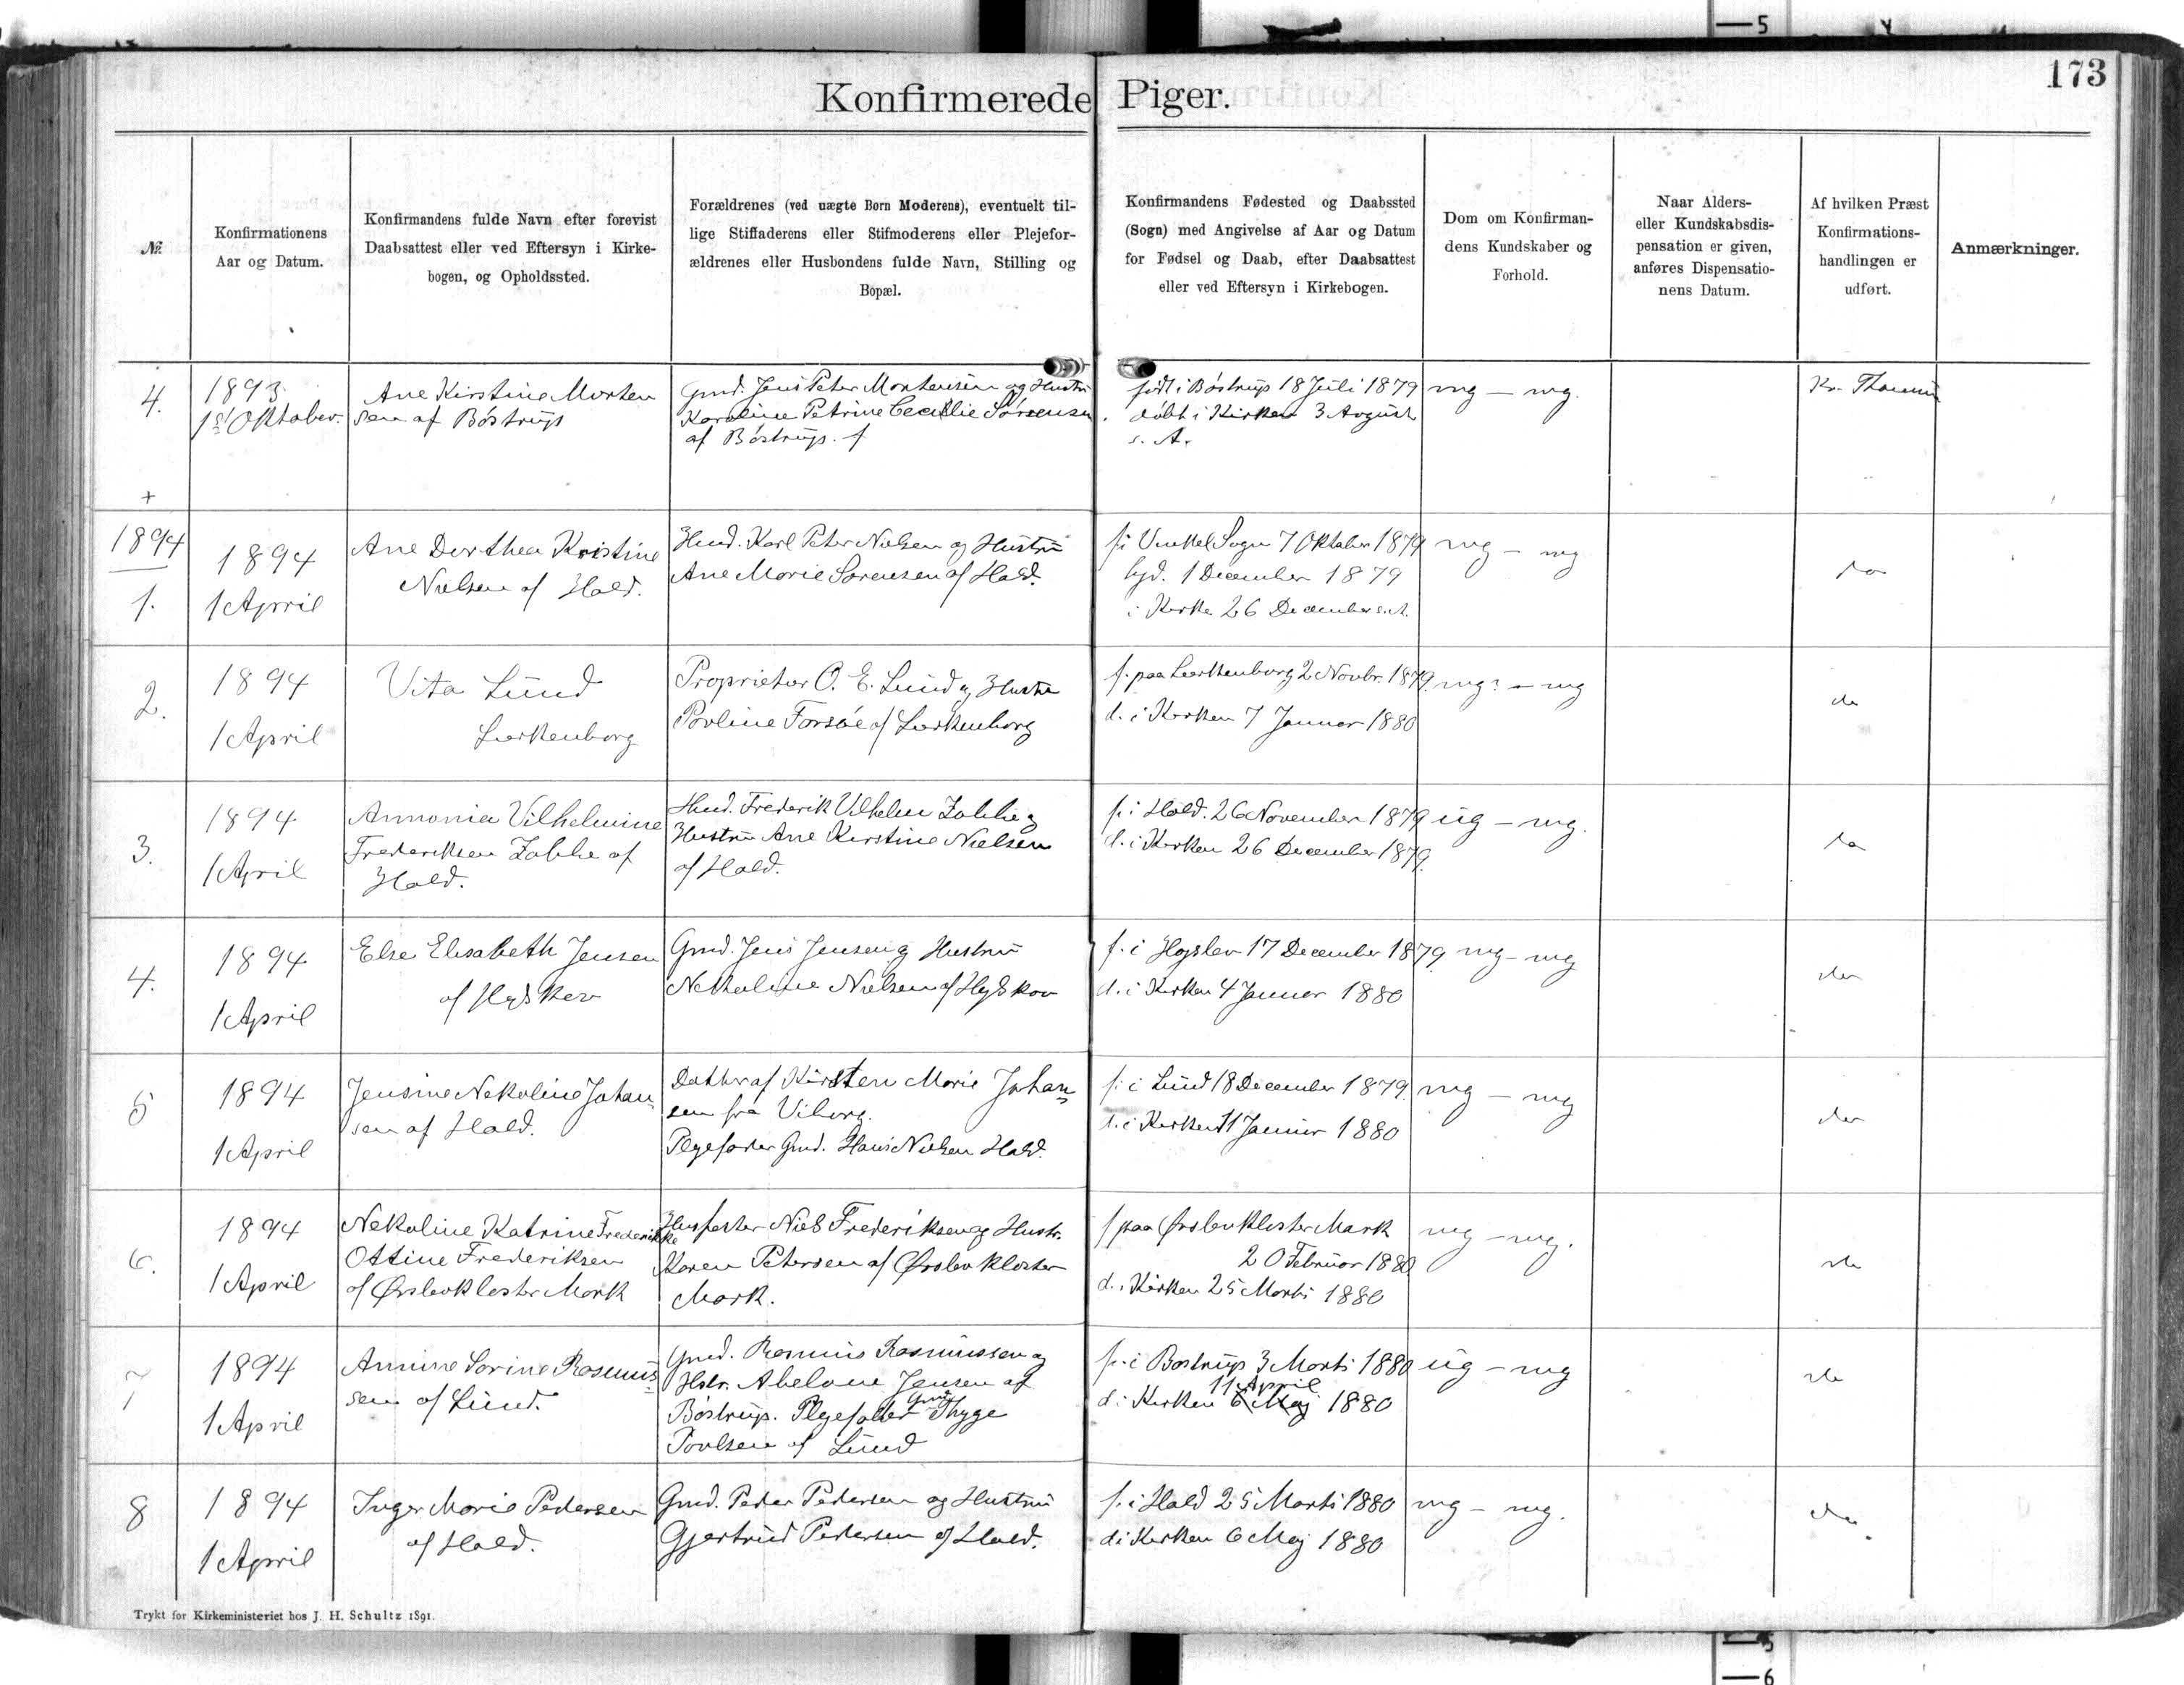 Konfirmerede Piger.
173
№
Konfirmationens
Aar og Datum.
Konfirmandens fulde Navn efter forevist
Daabsattest eller ved Eftersyn i Kirke-
bogen, og Opholdssted.
Forældrenes (ved uægte Børn Moderens), eventuelt til-
lige Stiffaderens eller Stifmoderens eller Plejefor-
ældrenes eller Husbondens fulde Navn, Stilling og
Bopæl.
Konfirmandens Fødested og Daabssted
(Sogn) med Angivelse af Aar og Datum
for Fødsel og Daab, efter Daabsattest
eller ved Eftersyn i Kirkebogen.
Dom om Konfirman-
dens Kundskaber og
Forhold.
Naar Alders-
eller Kundskabsdis-
pensation er given,
anføres Dispensatio-
nens Datum.
Af hvilken Præst
Konfirmations-
handlingen er
udført.
Anmærkninger.
4.
1893
1st Oktober.
Ane Kirstine Morten
sen af Böstrup
Gmd. Jens Peter Mortensen og Hustru
Karoline Petrine Cecilie Sörensen
af Böstrup.
født i Böstrup 18 Juli 1879
döbt i Kirken 3 August
s. A.
mg - mg.
+
1894
1.
1894
1 April
Ane Dorthea Kristine
Nielsen af Hald.
Husmd. Karl Peter Nielsen og Hustru
Ane Marie Sørensen af Hald.
Sogn 7 Oktober 1879
hjd. 1 December 1879
i Kirke 26 December s. A.
mg - mg
do
2.
1894
1 April
Vita Lund
Lærkenborg
Proprietær O. E. Lund og Hustru
Povline Forsøe af Lærkenborg
f. paa Lærkenborg 2 Novbr. 1879.
d. i Kirken 7 Januar 1880
mg? - mg
do
3.
1894
1 April
Annonia Vilhelmine
Frederiksen Zabbe af
Hald.
Husmd. Frederik Vilhelm Zabbe og
Hustru Ane Kirstine Nielsen
af Hald.
f. i Hald. 26 November 1879
d. i Kirken 26 December 1879.
ug - mg.
do
4.
1894
1 April
Else Elisabeth Jensen
af Hydskov
Gmd. Jens Jensen og Hustru
Nekoline Nielsen af Hydskov
f. i Højslev 17 December 1879
d. i Kirken 4 Januar 1880
mg - mg
do
5
1894
1 April
Jensine Nekoline Johan
sen af Hald.
Datter af Kirsten Marie Johan
sen fra Viborg.
Plejefader Gmd. Hans Nielsen Hald.
f. i Lund 18 December 1879.
d. i Kirken 11 Januar 1880
mg - mg
do
6.
1894
1 April
Nekoline Katrine Frederikke
Ottine Frederiksen
af Ørslevkloster Mark
Husfæster Niels Frederiksen og Hustr.
Karen Petersen af Ørslevkloster
Mark.
f paa Ørslevkloster Mark
20 Februar 1880
d. i Kirken 25 Marts 1880
mg - mg.
do
7
1894
1 April
Annine Sorine Rasmus
sen af Lund.
Gmd. Rasmus Rasmussen og
Hstr. Abelone Jensen af
Böstrup. Plejefader Gmd Thyge
Povlsen af Lund
f. i Bostrup 3 Marts 1880
11 April
d. i Kirken 6 Maj 1880
ug - mg
do
8
1894
1 April
Inger Marie Pedersen
af Hald.
Gmd. Peder Pedersen og Hustru
Gjertrud Pedersen af Hald.
f. i Hald 25 Marts 1880
d i Kirken 6 Maj 1880
mg - mg.
do
Trykt for Kirkeministeriet hos J. H. Schultz 1891.
5
5
6